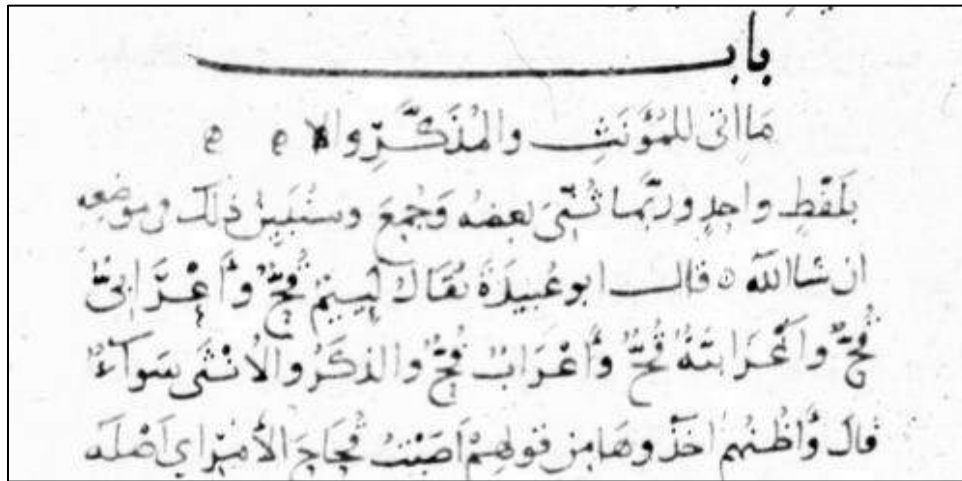 باب
مَا اتى للمُؤَنَثِ والمُذَكَّرِ والا
بلَفْظٍ واحِدٍ ورُبَّما ثُنّىَ بعضُه وَجُمِعَ وسنُبَيّنُ ذلك في موضعِه
ان شا الله قال ابو عُبَيدَةَ يُقَالُ لَئِيمٌ قُحٌّ وأَعْرَابىٌّ
قُحٌّ وأَعْرَابيَّةٌ قُحٌّ وأَعْرَابٌ قُحٌّ والذكَرُ والانْثَى سَوَآءٌ
قالَ وأَظُنُهُم اخَذُوهَا مِن قولِهِمْ اَصَبْتُ قُحَاحَ الأَمْرِ اي اَصْلَه